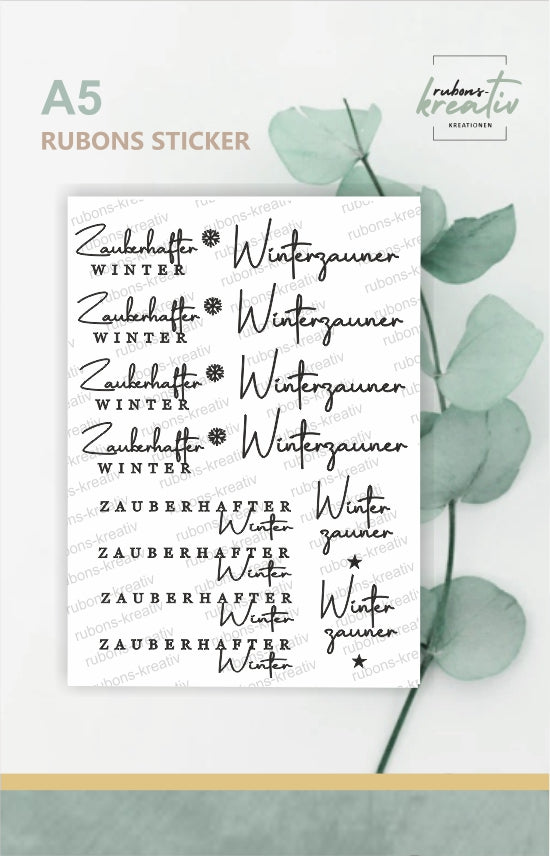 A5
RUBONS STICKER
rubons-
kreativ
KREATIONEN
Zauberhafter
WINTER
Winterzauner
Zauberhafter
WINTER
Winterzauner
Zauberhafter
WINTER
Winterzauner
Zauberhafter
WINTER
Winterzauner
ZAUBERHAFTER
Winter
ZAUBERHAFTER
Winter
ZAUBERHAFTER
Winter
ZAUBERHAFTER
Winter
Winter
zauner
Winter
zauner
rubons-kreativ